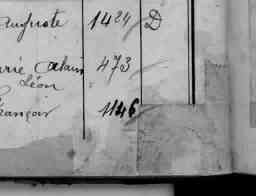 Auguste 1424 D
rie Alain 473
Léon
François 1146